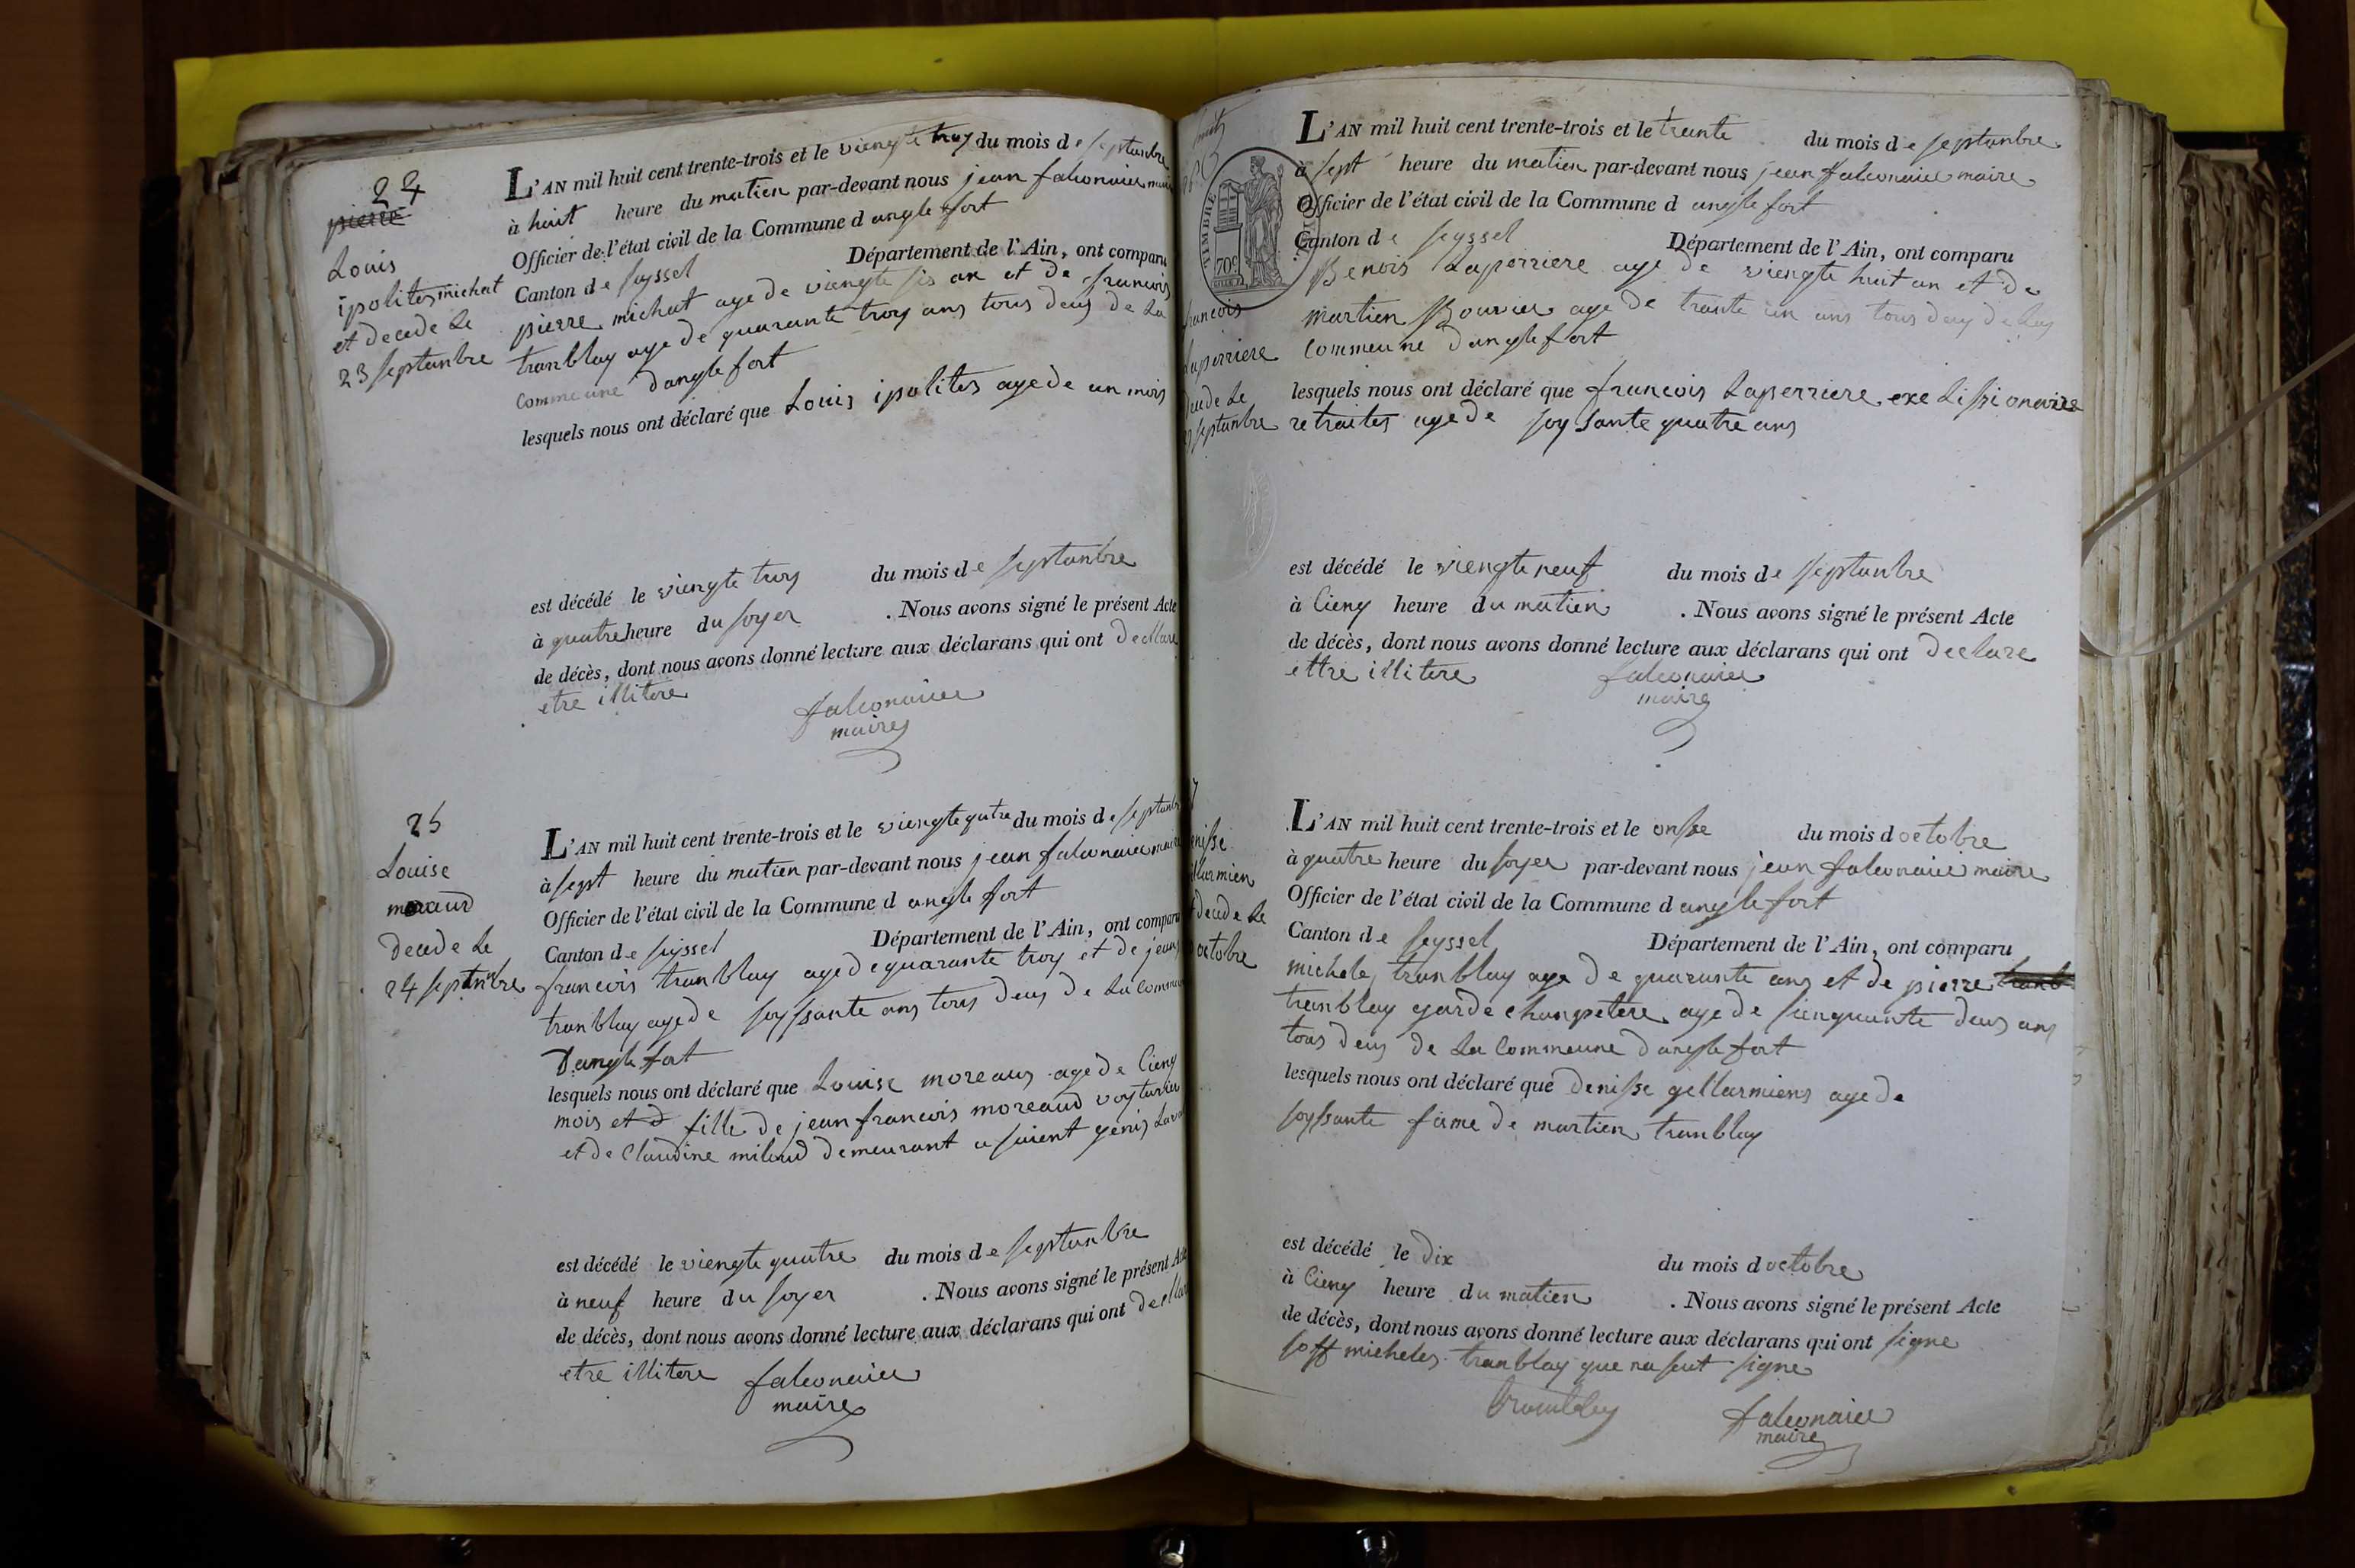 24
pierre
Louis
ipolites michat
et decede Le
23 septanbre
L'AN mil huit cent trente-trois et le viengte troy du mois de septanbre
à huit heure du matien par-devant nous jean falconaier maire
Officier de l'état civil de la Commune d angle fort
Canton de seyssel Département de l'Ain, ont comparu
pierre michat age de viengte sis an et de francois
tranblay age de quarante troy ans tous deus de La
commeune dangle fort
lesquels nous ont déclaré que Louis ipolites age de un mois
est décédé le viengte troy du mois de septanbre
à quatre heure du soyer . Nous avons signé le présent Acte
de décès, dont nous avons donné lecture aux déclarans qui ont decllare
etre illitere
falconaier
maire
25
Louise
moraud
decede Le
24 septanbre
L'AN mil huit cent trente-trois et le viengte qutre du mois de septanbre
à sept heure du matien par-devant nous jean falconaier maire
Officier de l'état civil de la Commune d angle fort
Canton de seyssel Département de l'Ain, ont comparu
francois tranblay age de quarante troy et de jean
tranblay age de soyssante ans tous deus de La commeune
Dangle fort
lesquels nous ont déclaré que Louise moreaus age de Cienq
mois et d fille de jean francois moreaud voyturier
et de Claudine miloud demeurant a saient genis Laval
est décédé le viengte quatre du mois de septanbre
à neuf heure du soyer . Nous avons signé le présent Acte
de décès, dont nous avons donné lecture aux déclarans qui ont decllare
etre illitere falconaier
maire
TIMBRE
70c
francois
Laperriere
decede Le
septanbre
L'AN mil huit cent trente-trois et le trante du mois de septanbre
à sept heure du matien par-devant nous jean falconaier maire
Officier de l'état civil de la Commune d angle fort
Canton de seyssel Département de l'Ain, ont comparu
Benois Laperriere age de viengte huit an et de
martien Bouvier age de trante un ans tous deus de Las
Commeune dangle fort
lesquels nous ont déclaré que francois Laperriere exe Lissionaire
retraites age de soysante quatre ans
est décédé le viengte neuf du mois de septanbre
à Cienq heure du matien . Nous avons signé le présent Acte
de décès, dont nous avons donné lecture aux déclarans qui ont declare
ettre illitere
falconaier
maire
enisse
llarmien
decede Le
octobre
L'AN mil huit cent trente-trois et le onsse du mois d octobre
à quatre heure du soyer par-devant nous jean falconaier maire
Officier de l'état civil de la Commune d angle fort
Canton de seyssel Département de l'Ain, ont comparu
micheles tranblay age de quarante ans et de pierre tranb
tranblay garde chanpetere age de sienquante deus ans
tous deus de La Commeune dangle fort
lesquels nous ont déclaré que denisse gellarmiens age de
soyssante fame de martien tranblay
est décédé le dix du mois d octobre
à Cienq heure du matien . Nous avons signé le présent Acte
de décès, dont nous avons donné lecture aux déclarans qui ont signe
soff micheles tranblay que ne seut signe
trambley
falconaier
maire